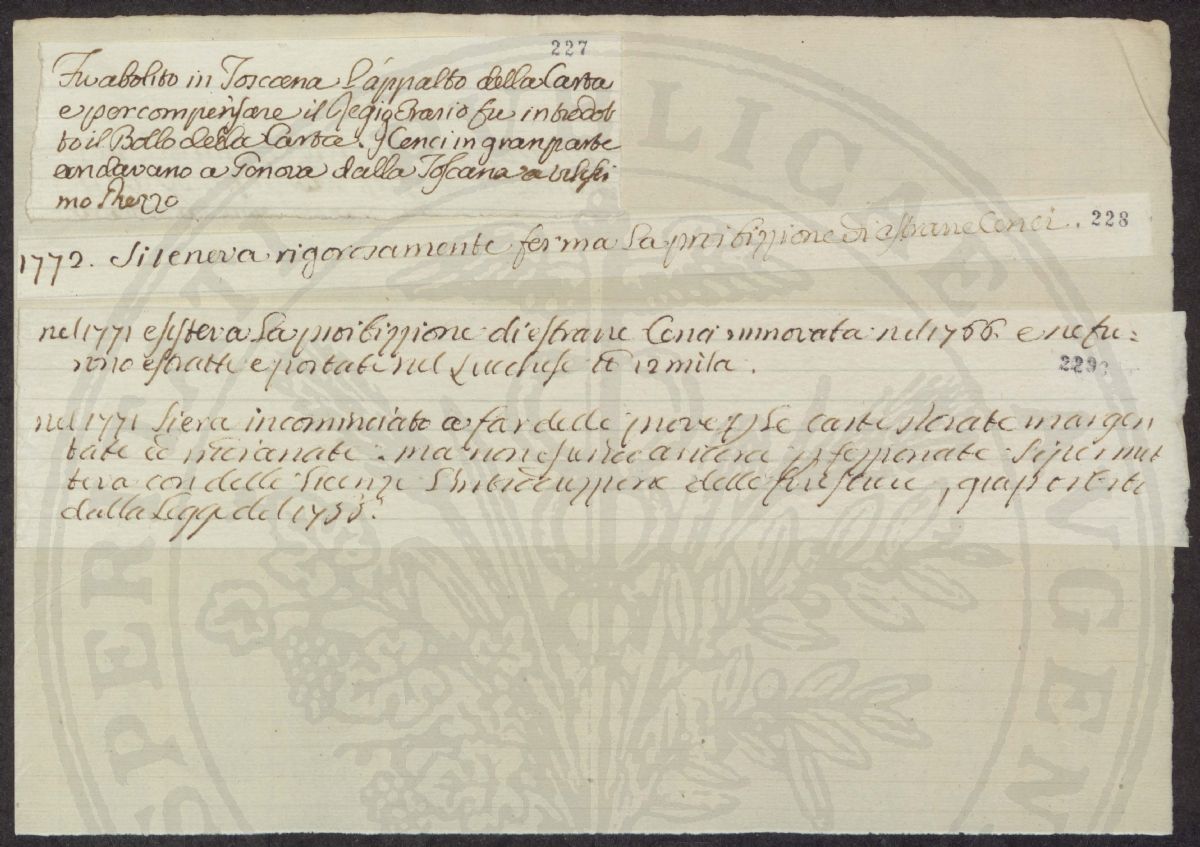 227
Fu abolito in Toscana l'appalto della Carta
e per compensare il Regio Erario fu introdot
to il Bollo della Carta. I Cenci in gran parte
andavano a Genova dalla Toscana a vilissi
mo Prezzo
228
1772. Si teneva rigorosamente ferma la proibizzione di estrarre Cenci.
nel 1771 esisteva la proibizzione di estrarre Cenci rinnovata nel 1766. e ne fu=
rono estratte e portate nel Lucchese 12 mila.
229
nel 1771 si era incominciato a far delle prove le carte dorate inargen
tate ma non erano ancora perfezzionate. Si permet
teva con delle licenze l'introduzzione delle forestiere, già proibite
dalla Legge del 1755.
SPERETI PUBLICAE INGEN